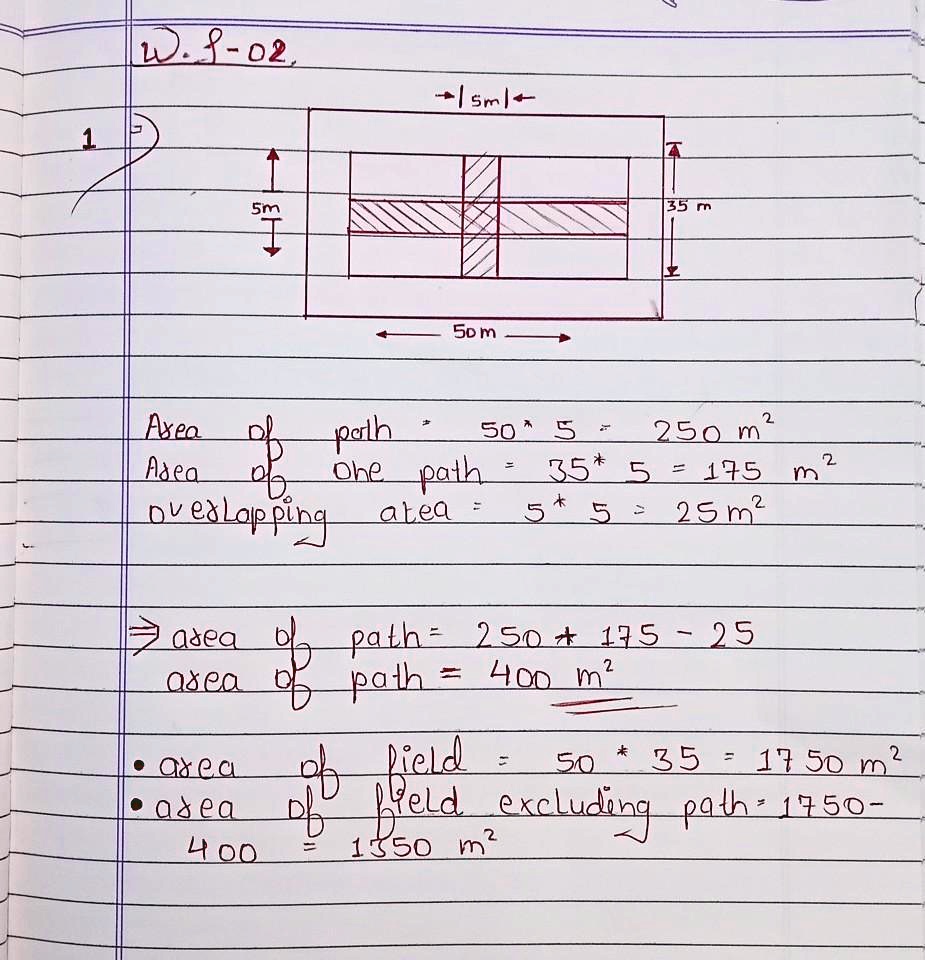 W.S-02.
→|5m|←
1
5m
35 m
50m
Area of path = 50* 5 = 250 m²
Area of one path = 35* 5 = 175 m²
overlapping area = 5* 5 = 25m²
⇒ area of path = 250 * 175 - 25
area of path = 400 m²
• area of field = 50 * 35 = 1750 m²
• area of field excluding path = 1750-
400 = 1350 m²